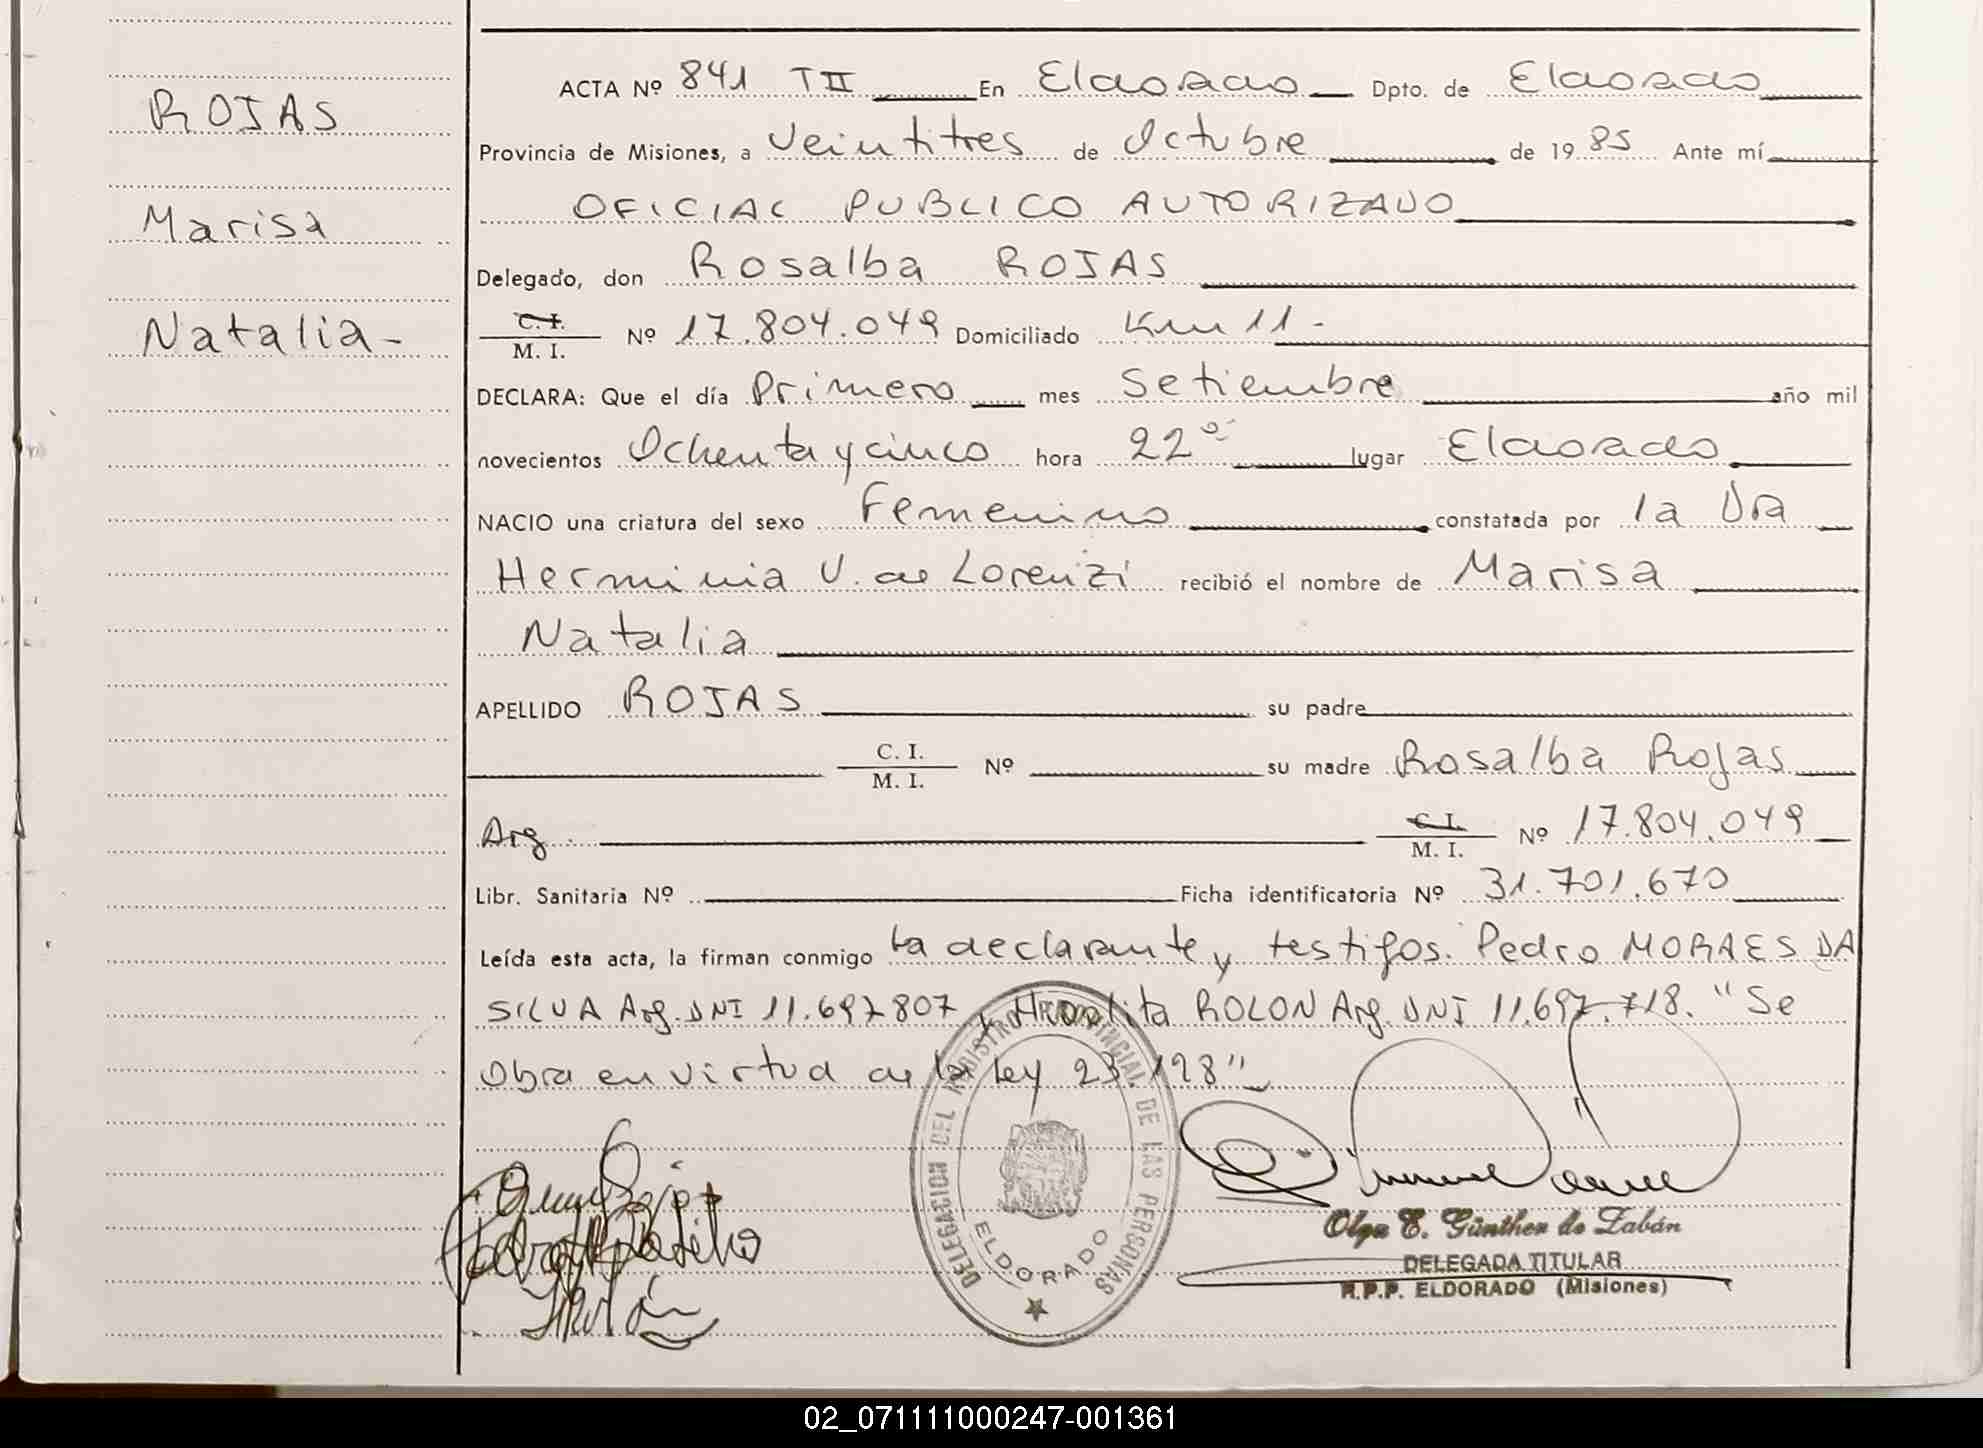 ROJAS
Marisa
Natalia-
ACTA Nº 841 T II En Eldorado Dpto. de Eldorado
Provincia de Misiones, a Veintitres de Octubre de 19 85 Ante mí
OFICIAL PUBLICO AUTORIZADO
Delegado, don Rosalba ROJAS
C. I.
M. I. Nº 17.804.049 Domiciliado Km 11-
DECLARA: Que el día Primero mes Setiembre año mil
novecientos Ochenta y cinco hora 22 lugar Eldorado
NACIO una criatura del sexo Femenino constatada por la Dra
Herminia V. de Lorenzi recibió el nombre de Marisa
Natalia
APELLIDO ROJAS su padre
C. I.
M. I. Nº su madre Rosalba Rojas
Arg. C. I.
M. I. Nº 17.804.049
Libr. Sanitaria Nº Ficha identificatoria Nº 31.701.670
Leída esta acta, la firman conmigo la declarante y testigos. Pedro MORAES DA
SILVA Arg. DNI 11.697807 y ROLON Arg. DNI 11.697.718. "Se
Obra en virtud de la ley 23.128"
DELEGACION DEL REGISTRO PROVINCIAL DE LAS PERSONAS
ELDORADO
Olga E. Günther de Zabán
DELEGADA TITULAR
R.P.P. ELDORADO (Misiones)
02_071111000247-001361